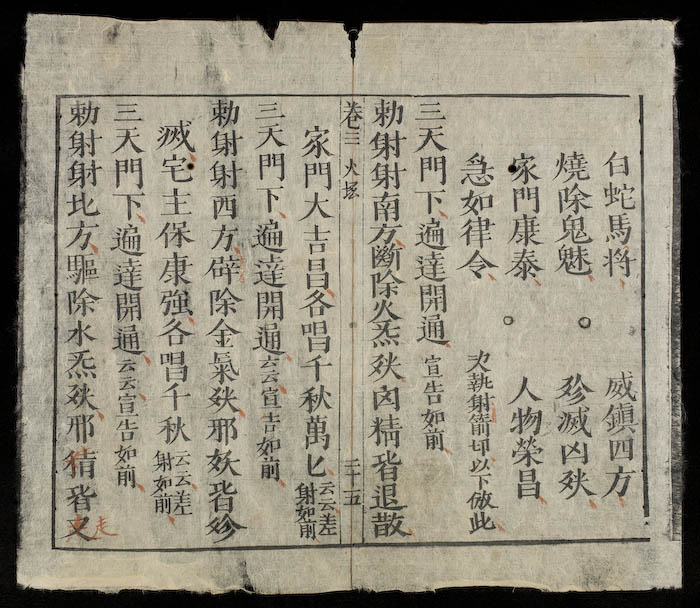 白蛇馬将　威鎮四方
燒除鬼魅　殄滅凶殃
家門康泰　人物榮昌
急如律令　次執射箭即以下倣此
三天門下遍達開通宣告如前
勅射射南方斷除火炁殃凶精皆退散
卷三 火坛 三十五
家門大吉昌各唱千秋萬匕云云差射如前
三天門下遍達開通云云宣告如前
勅射射西方辟除金氣殃邪妖皆殄
滅宅主保康強各唱千秋云云差射如前
三天門下遍達開通云云宣告如前
勅射射北方驅除水炁殃邪精皆又
走